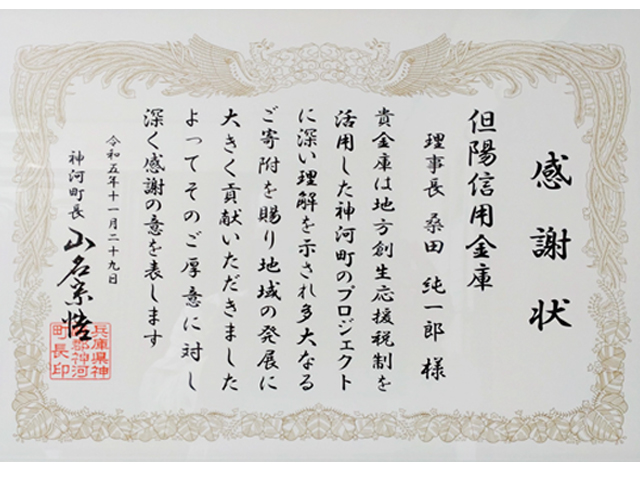 感謝状
但陽信用金庫
理事長 桑田 純一郎 様
貴金庫は地方創生応援税制を
活用した神河町のプロジェクト
に深い理解を示され多大なる
ご寄附を賜り地域の発展に
大きく貢献いただきました
よってそのご厚意に対し
深く感謝の意を表します
令和五年十一月二十九日
神河町長 山名宗悟
兵庫県神
崎郡神河
町長印